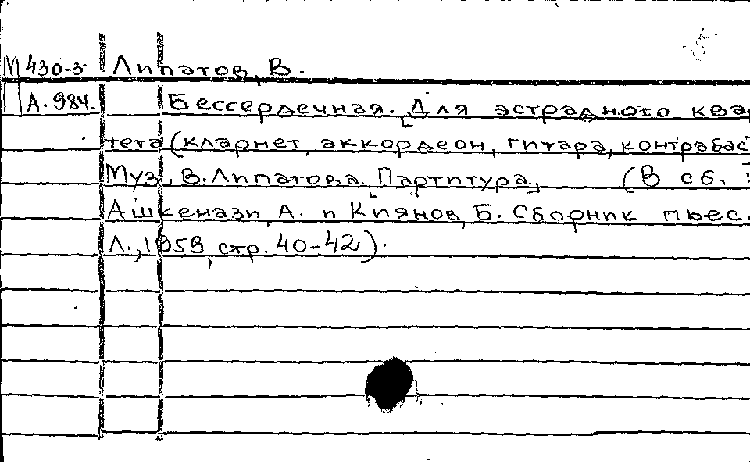 М 430-3 Липатов, В.
А. 984. Бессердечная. [Для эстрадного квар
тета (кларнет, аккордеон, гитара, контрабас
Муз. В. Липатова. Партитура. (В сб.
Ашкенази, А. и Киянов, Б. Сборник пьес.
Л., 1959, стр. 40-42).